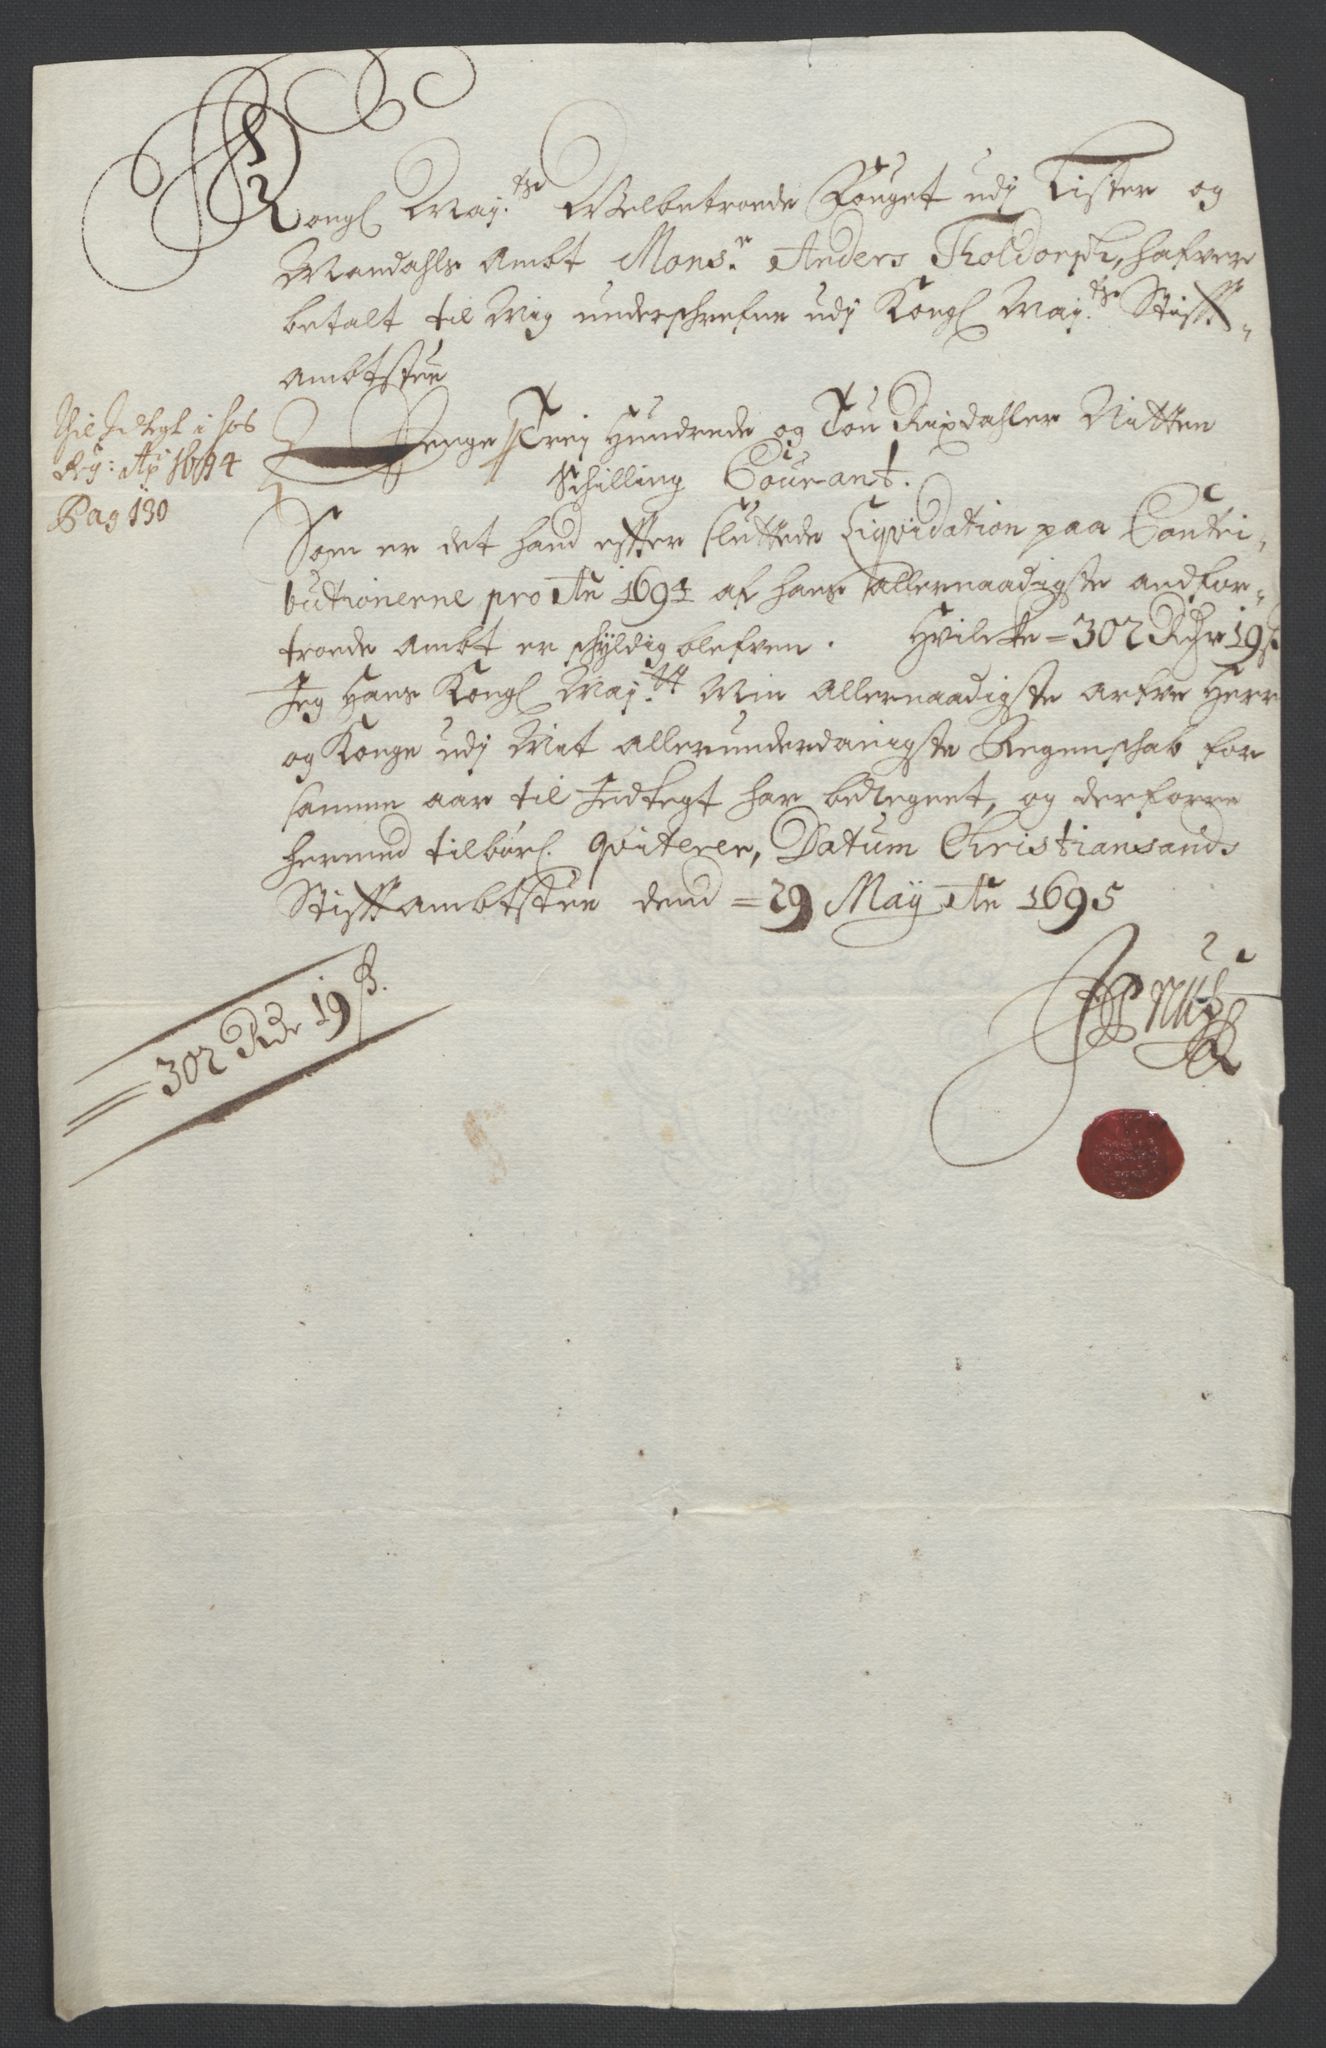 Kongl May.ts Welbetroede Fouget udj Lister og
Mandahls Ambt Mons.r Anders Tholdorph, hafver
betalt til Mig underschrefne udj Kongl May.ts Stift-
ambtstue
Penge Trej Hundrede og Tou Rixdahler Nitten
Schilling Courant.
Som er det hand efter sluttede Liqvidation paa Contri-
butionerne pro Ao 1694 af hans allernaadigste andfor-
troede Ambt er schÿldig blefven. Hvilcke = 302 Rdr 19 ß
Jeg Hans Kongl May.tt Min Allernaadigste Arfve Herr
og Konge udj Mit allerunderdanigste Regenschab for
samme aar til Indtegt har beregnet, og derforre
hermed tilbørl. qviterer, Datum Christiansands
Stiftambtstue dend = 29 Maÿ Ao 1695
Til Indtegt i hos
Reg: Ao 1694
Pag 130
= 302 Rdr 19 ß.